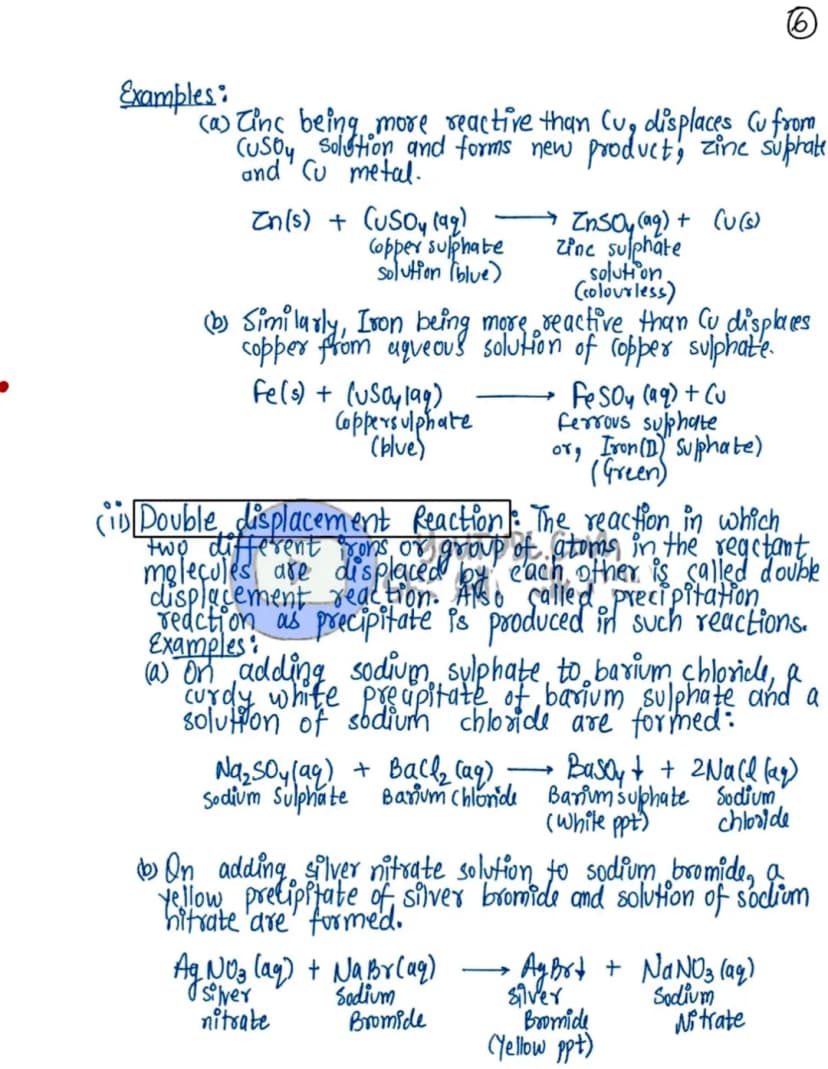 ⑥
Examples:
(a) Zinc being more reactive than Cu, displaces Cu from
CuSO₄ solution and forms new product, zinc suphate
and Cu metal.
Zn(s) + CuSO₄ (aq) ⟶ ZnSO₄ (aq) + Cu(s)
Copper sulphate zinc sulphate
solution (blue) solution
(colourless)
(b) Similarly, Iron being more reactive than Cu displaces
copper from aqueous solution of copper sulphate.
Fe(s) + CuSO₄(aq) ⟶ FeSO₄ (aq) + Cu
Copper sulphate ferrous sulphate
(blue) or, Iron(II) sulphate)
(Green)
(ii) Double displacement Reaction: The reaction in which
two different or group of atoms in the reactant
molecules are displaced by each other is called double
displacement reaction. Also called precipitation
reaction as precipitate is produced in such reactions.
Examples:
(a) On adding sodium sulphate to barium chloride, a
curdy white precipitate of barium sulphate and a
solution of sodium chloride are formed:
Na₂SO₄(aq) + BaCl₂ (aq) ⟶ BaSO₄↓ + 2NaCl (aq)
Sodium Sulphate Barium Chloride Barium sulphate Sodium
(White ppt) chloride
(b) On adding silver nitrate solution to sodium bromide, a
yellow precipitate of silver bromide and solution of sodium
nitrate are formed.
AgNO₃ (aq) + NaBr(aq) ⟶ AgBr↓ + NaNO₃ (aq)
silver Sodium silver Sodium
nitrate Bromide Bromide Nitrate
(Yellow ppt)